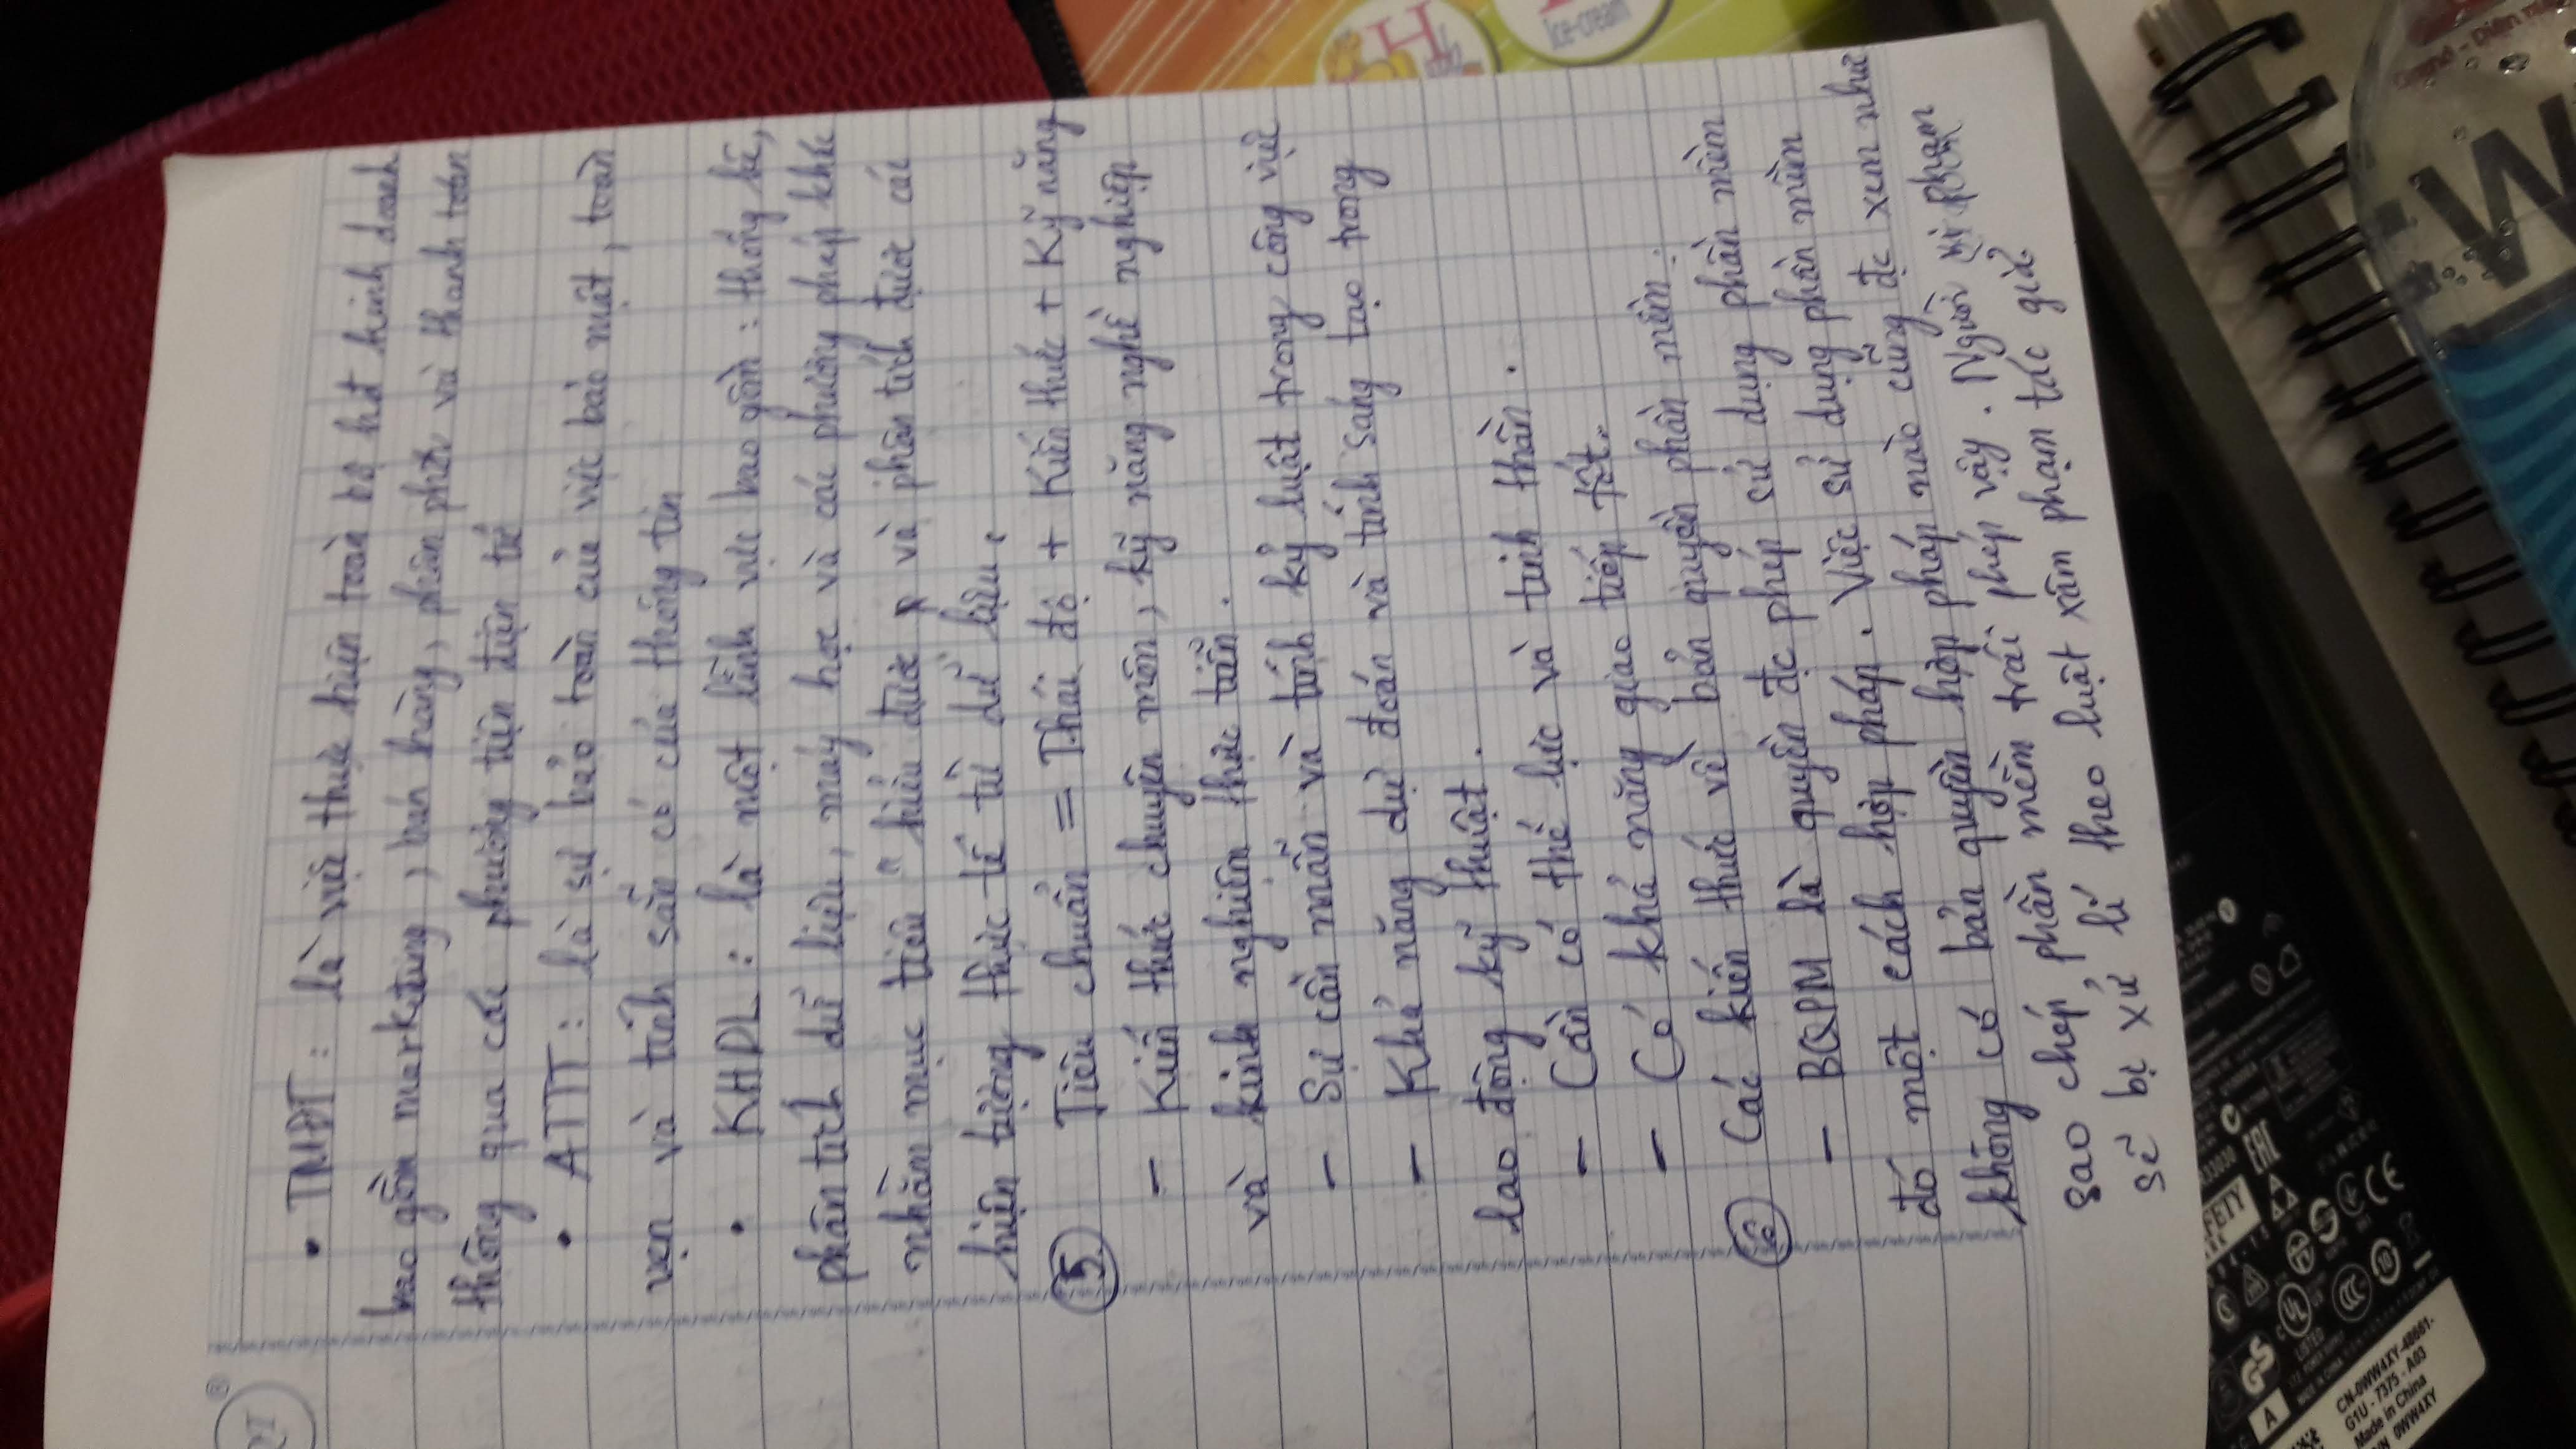 • TMĐT : là việc thực hiện toàn bộ hđ kinh doanh
bao gồm marketing, bán hàng, phân phối và thanh toán
thông qua các phương tiện điện tử
• ATTT : là sự bảo toàn của việc bảo mật, toàn
vẹn và tính sẵn có của thông tin
• KHDL : là một lĩnh vực bao gồm : thống kê,
phân tích dữ liệu, máy học và các phương pháp khác
nhằm mục tiêu " hiểu được và phân tích được các
hiện tượng thực tế từ dữ liệu.
5. Tiêu chuẩn = Thái độ + Kiến thức + Kỹ năng
- Kiến thức chuyên môn, kỹ năng nghề nghiệp
và kinh nghiệm thực tiễn.
- Sự cần mẫn và tính kỷ luật trong công việc
- Khả năng dự đoán và tính sáng tạo trong
lao động kỹ thuật.
- Cần có thể lực và tinh thần.
- Có khả năng giao tiếp tốt.
6 Các kiến thức về bản quyền phần mềm:
- BQPM là quyền đc phép sử dụng phần mềm
đó một cách hợp pháp. Việc sử dụng phần mềm
không có bản quyền hợp pháp nào cũng đc xem như
sao chép phần mềm trái phép vậy. Người vi phạm
sẽ bị xử lí theo luật xâm phạm tác giả
GS
A
CN-0WW4XY-48661-
G1U - 7375 - A03
Made in China
0WW4XY
LISTED
EAC
CE
ice-cream
W